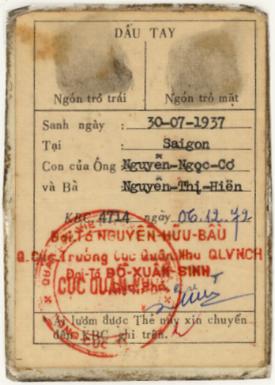 DẤU TAY
Ngón trỏ trái Ngón trỏ mặt
Sanh ngày : 30-07-1937
Tại : Saigon
Con của Ông Nguyễn-Ngọc-Cơ
và Bà Nguyễn-Thị-Hiền
KBC 4714 ngày 06.12.72
Đại-Tá NGUYỄN-HỮU-BẦU
Q. Cục Trưởng Cục Quân Nhu QLVNCH
Đại-Tá ĐỖ-XUÂN-SINH
CỤC QUÂN NHU
Ai lượm được Thẻ này xin chuyển
đến KBC ghi trên.